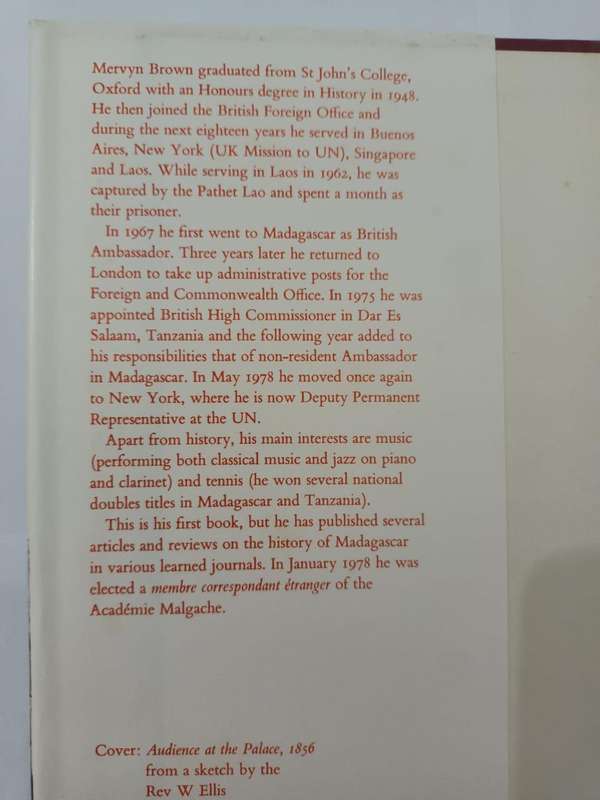 Mervyn Brown graduated from St John's College,
Oxford with an Honours degree in History in 1948.
He then joined the British Foreign Office and
during the next eighteen years he served in Buenos
Aires, New York (UK Mission to UN), Singapore
and Laos. While serving in Laos in 1962, he was
captured by the Pathet Lao and spent a month as
their prisoner.
In 1967 he first went to Madagascar as British
Ambassador. Three years later he returned to
London to take up administrative posts for the
Foreign and Commonwealth Office. In 1975 he was
appointed British High Commissioner in Dar Es
Salaam, Tanzania and the following year added to
his responsibilities that of non-resident Ambassador
in Madagascar. In May 1978 he moved once again
to New York, where he is now Deputy Permanent
Representative at the UN.
Apart from history, his main interests are music
(performing both classical music and jazz on piano
and clarinet) and tennis (he won several national
doubles titles in Madagascar and Tanzania).
This is his first book, but he has published several
articles and reviews on the history of Madagascar
in various learned journals. In January 1978 he was
elected a membre correspondant étranger of the
Académie Malgache.
Cover: Audience at the Palace, 1856
from a sketch by the
Rev W Ellis